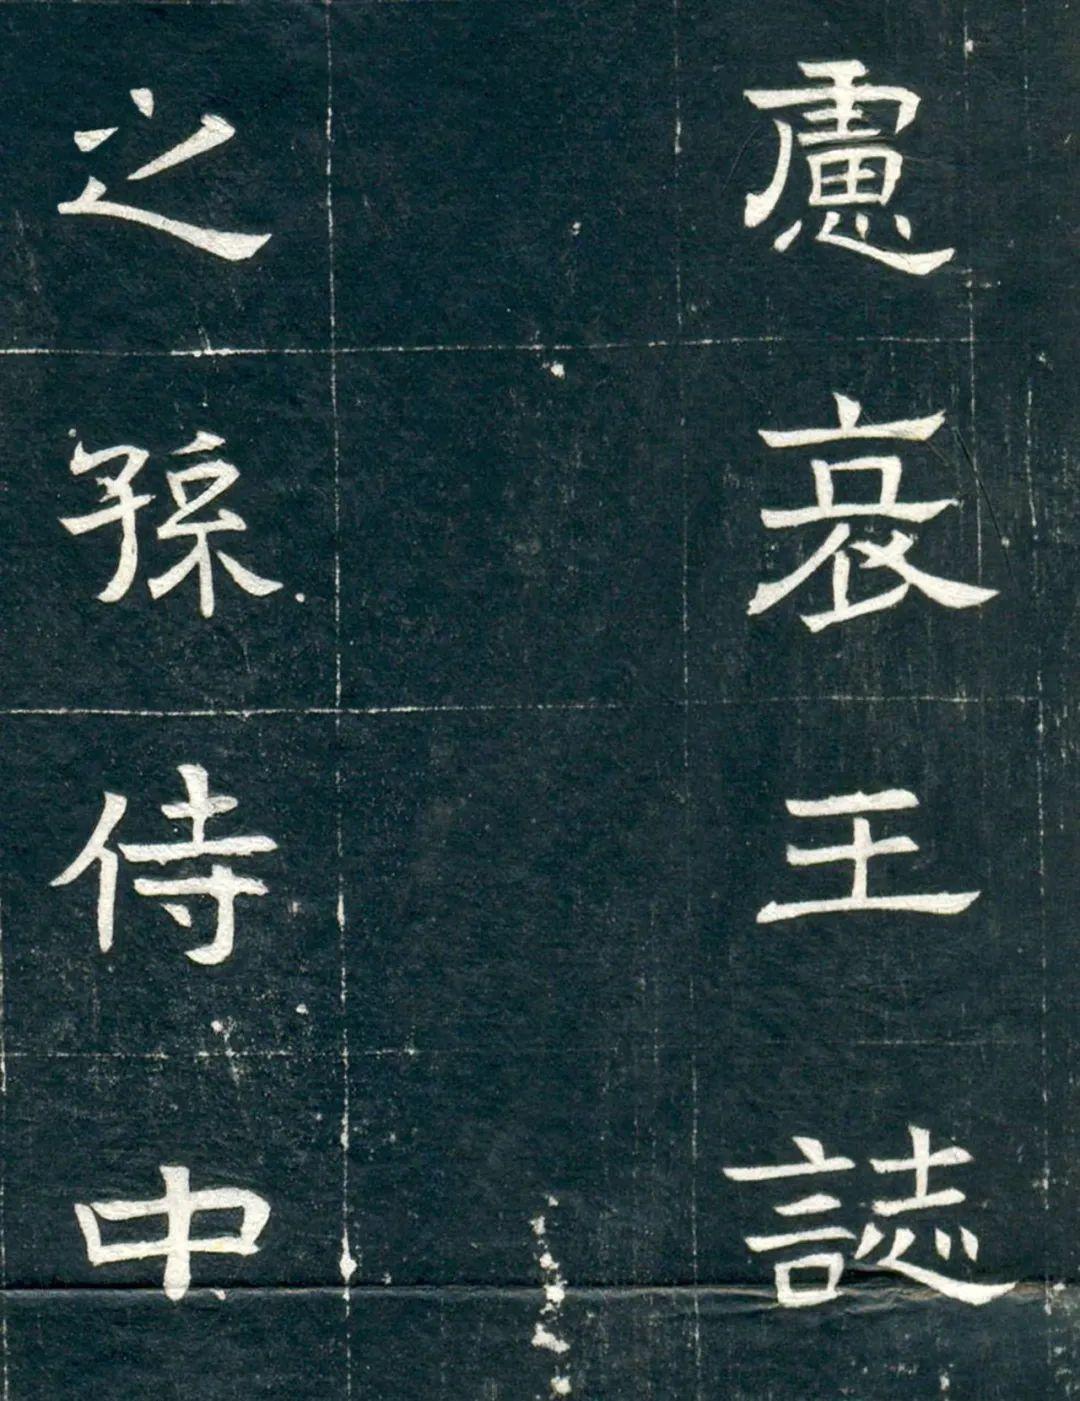 慮哀王誌
之孫侍中